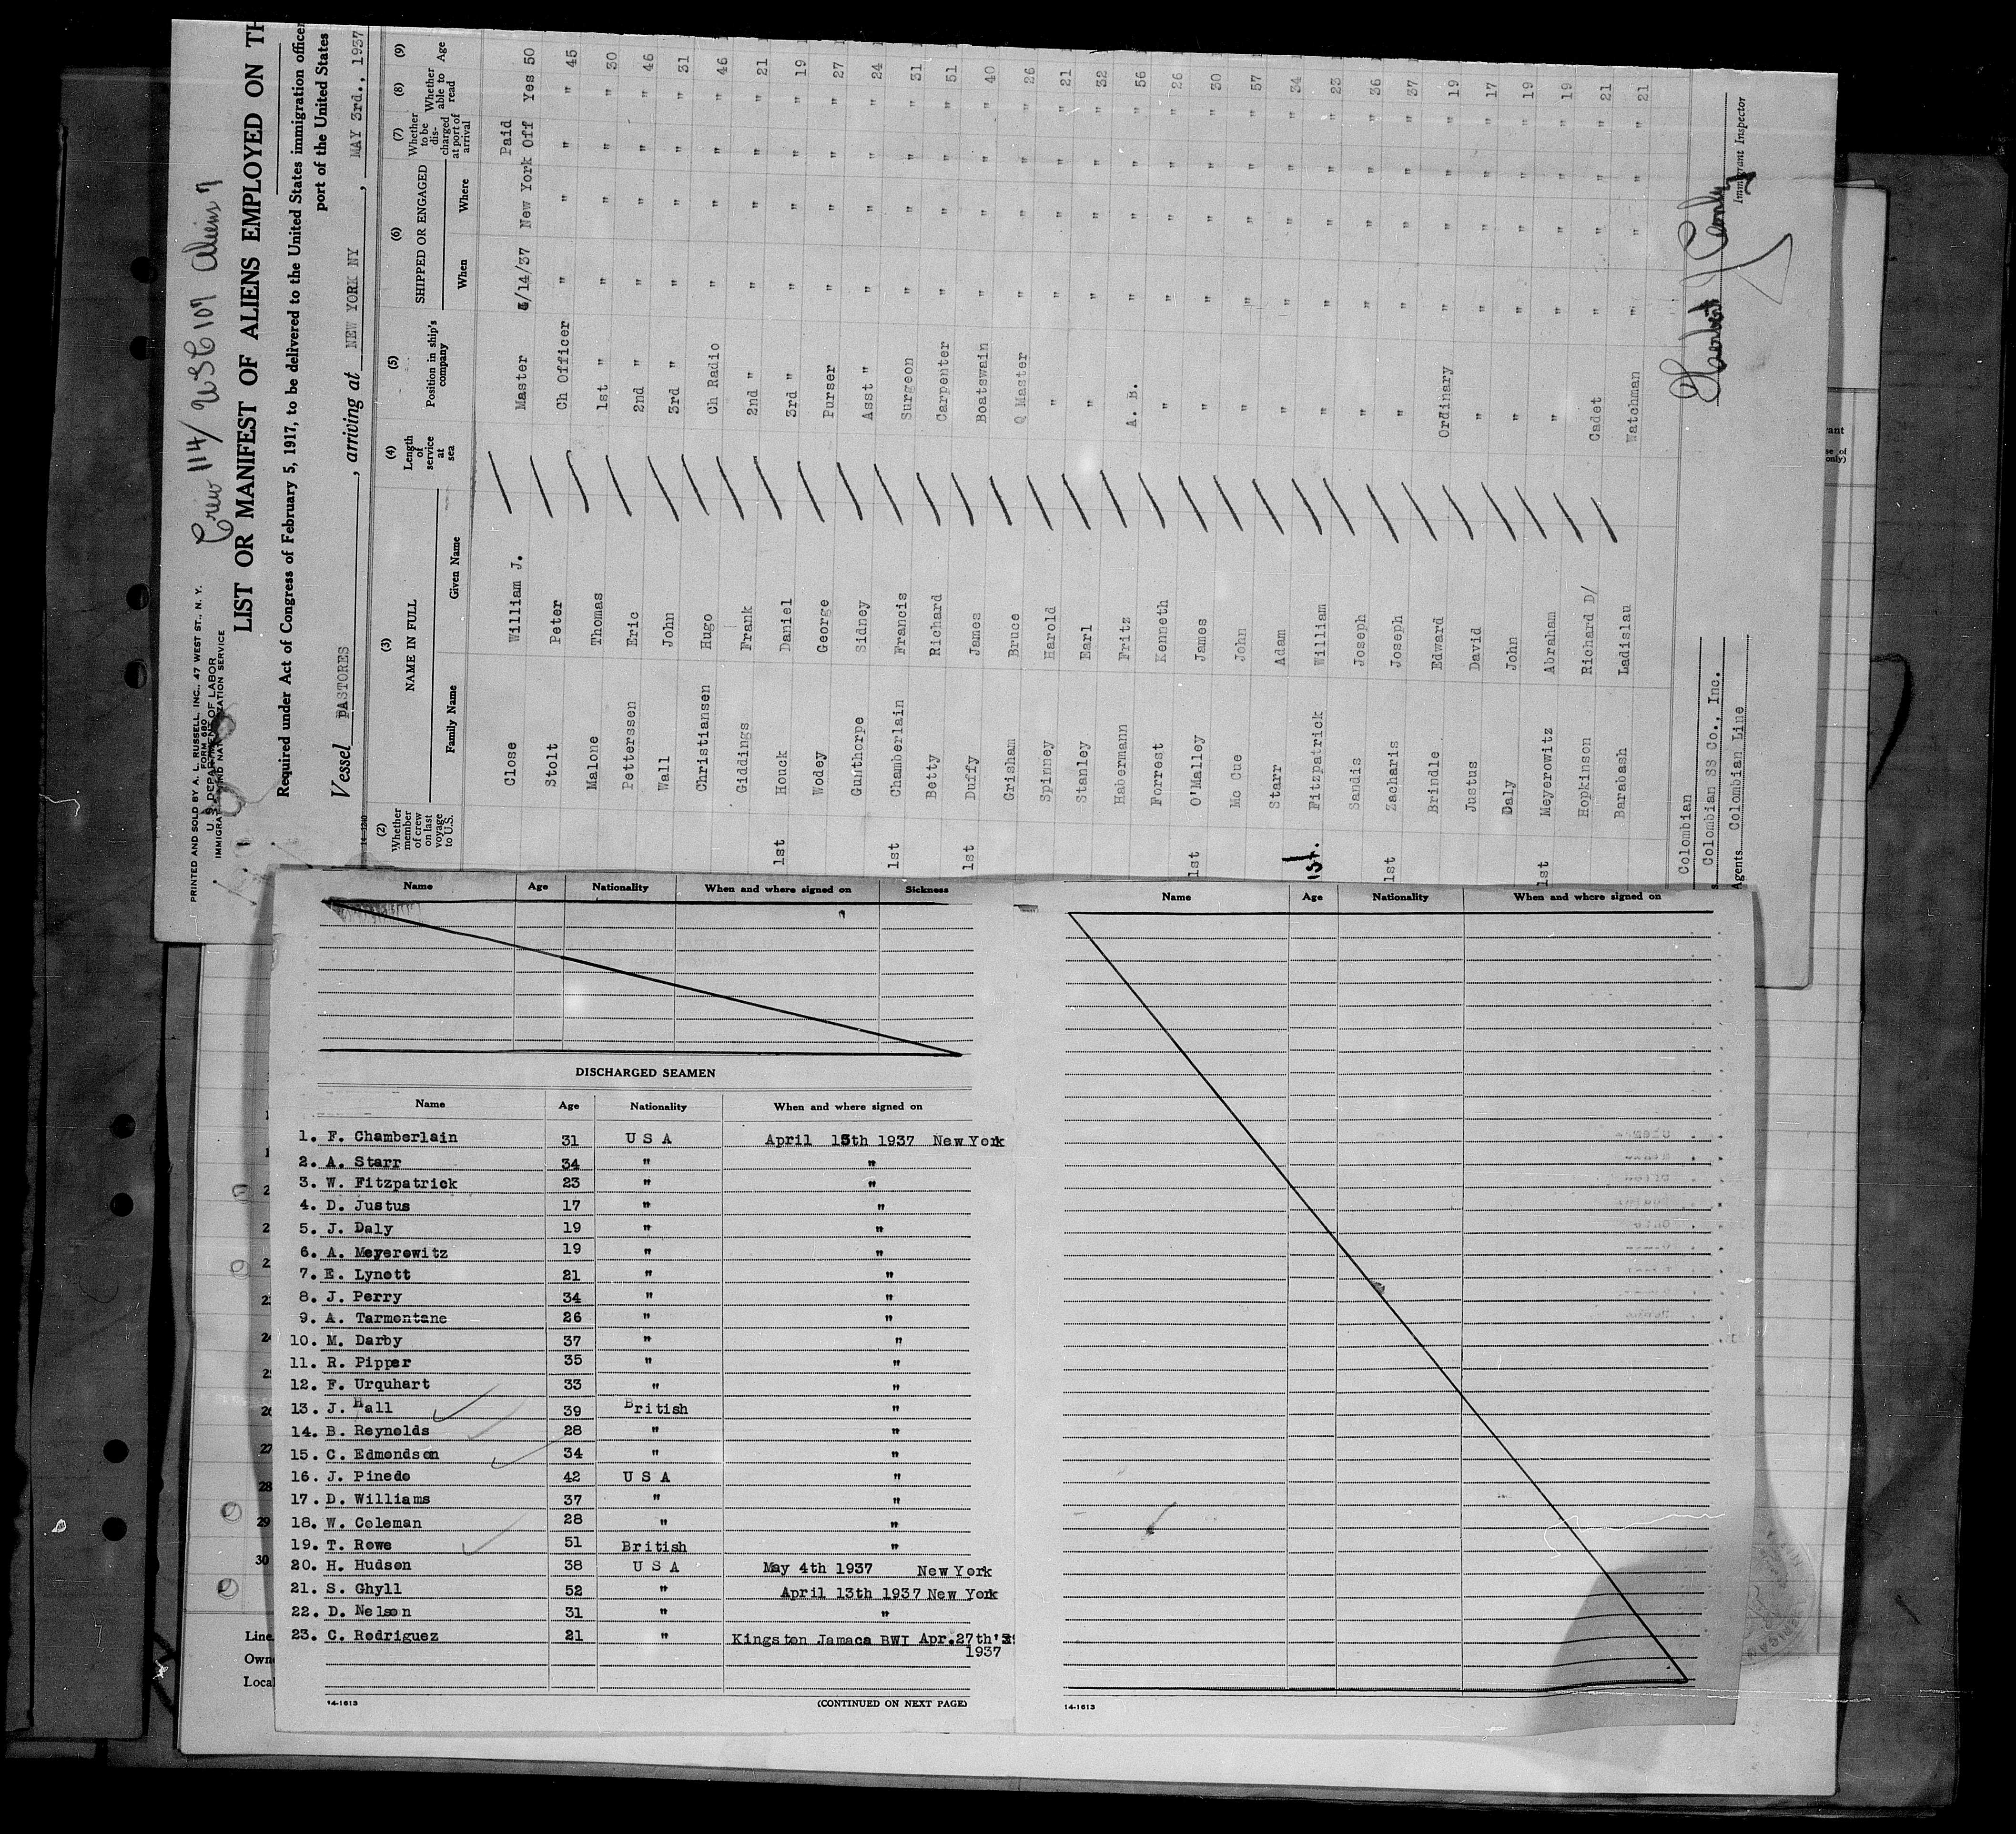 PRINTED AND SOLD BY A. L. RUSSELL, INC., 47 WEST ST., N. Y.
FORM 680
U. S. DEPARTMENT OF LABOR
IMMIGRATION AND NATURALIZATION SERVICE
Crew 114/ USC 107 Aliens 7
LIST OR MANIFEST OF ALIENS EMPLOYED ON TH
Required under Act of Congress of February 5, 1917, to be delivered to the United States immigration officer
port of the United States
Vessel PASTORES , arriving at NEW YORK NY , MAY 3rd., 1937
(2) Whether member of crew on last voyage to U.S. (3) NAME IN FULL Family Name Given Name (4) Length of service at sea (5) Position in ship's company (6) SHIPPED OR ENGAGED When Where (7) Whether to be discharged at port of arrival (8) Whether able to read (9) Age
Close William J. Master 4/14/37 New York Paid Off Yes 50
Stolt Peter Ch Officer " " " " 45
Malone Thomas 1st " " " " " 30
Petterssen Eric 2nd " " " " " 46
Wall John 3rd " " " " " 31
Christiansen Hugo Ch Radio " " " " 46
Giddings Frank 2nd " " " " " 21
1st Houck Daniel 3rd " " " " " 19
Wodey George Purser " " " " 27
Gunthorpe Sidney Asst " " " " " 24
1st Chamberlain Francis Surgeon " " " " 31
Betty Richard Carpenter " " " " 51
1st Duffy James Boatswain " " " " 40
Grisham Bruce Q Master " " " " 26
Spinney Harold " " " " " 21
Stanley Earl " " " " " 32
Habermann Fritz A. B. " " " " 56
Forrest Kenneth " " " " " 26
1st O'Malley James " " " " " 30
Mc Cue John " " " " " 57
Starr Adam " " " " " 34
1st. Fitzpatrick William " " " " " 23
Sandis Joseph " " " " " 36
1st Zacharis Joseph " " " " " 37
Brindle Edward Ordinary " " " " 19
Justus David " " " " " 17
Daly John " " " " " 19
1st Meyerowitz Abraham " " " " " 19
Hopkinson Richard D/ Cadet " " " " 21
Barabash Ladislau Watchman " " " " 21
Colombian
Colombian SS Co., Inc.
Agents Colombian Line
Immigrant Inspector
Name Age Nationality When and where signed on Sickness
DISCHARGED SEAMEN
Name Age Nationality When and where signed on
1. F. Chamberlain 31 U S A April 15th 1937 New York
2. A. Starr 34 " "
3. W. Fitzpatrick 23 " "
4. D. Justus 17 " "
5. J. Daly 19 " "
6. A. Meyerowitz 19 " "
7. E. Lynott 21 " "
8. J. Perry 34 " "
9. A. Tarmontane 26 " "
10. M. Darby 37 " "
11. R. Pipper 35 " "
12. F. Urquhart 33 " "
13. J. Hall 39 British "
14. B. Reynolds 28 " "
15. C. Edmondson 34 " "
16. J. Pinedo 42 U S A "
17. D. Williams 37 " "
18. W. Coleman 28 " "
19. T. Rowe 51 British "
20. H. Hudson 38 U S A May 4th 1937 New York
21. S. Ghyll 52 " April 13th 1937 New York
22. D. Nelson 31 " "
23. C. Rodriguez 21 " Kingston Jamaca BWI Apr.27th
1937
14-1613 (CONTINUED ON NEXT PAGE)
Name Age Nationality When and where signed on
14-1613
27
28
29
30
Line
Owne
Local